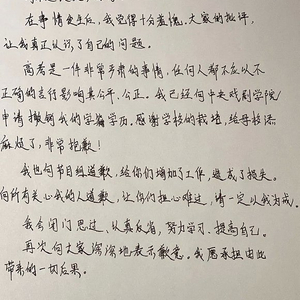 在事情发生后，我觉得十分羞愧。大家的批评，
让我真正认识了自己的问题。
高考是一件非常严肃的事情，任何人都不应以不
正确的言行影响其公平、公正。我已经向中央戏剧学院
申请撤销我的学籍学历。感谢学校的栽培，给母校添
麻烦了，非常抱歉！
我也向节目组道歉，给你们增加了工作，造成了损失。
向所有关心我的人道歉，让你们担心难过，请一定以我为戒。
我会闭门思过、认真反省，努力学习、提高自己。
再次向大家深深地表示歉意。我愿承担由此
带来的一切后果。